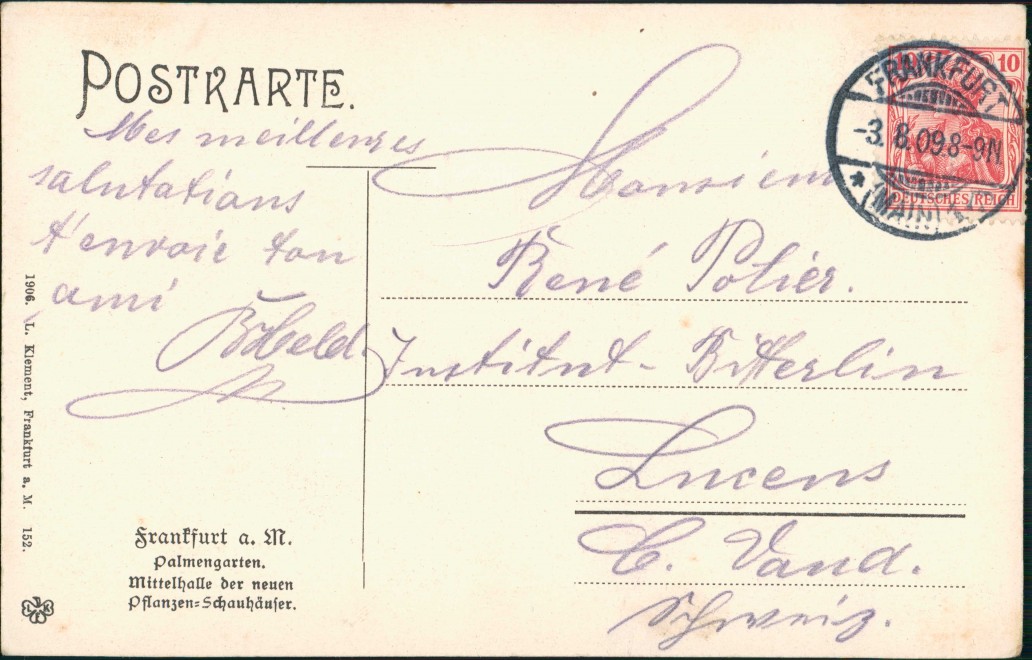 POSTKARTE.
Mes meilleures
salutations
t'envoie ton
ami
Monsieur
René Polier.
Institut-Bitterlin
Lucens
C. Vaud.
Schweiz.
10
DEUTSCHES REICH
FRANKFURT
-3.8.09 8-9N
* (MAIN) 1.
1906. L. Klement, Frankfurt a. M. 152.
Frankfurt a. M.
Palmengarten.
Mittelhalle der neuen
Pflanzen=Schauhäuser.